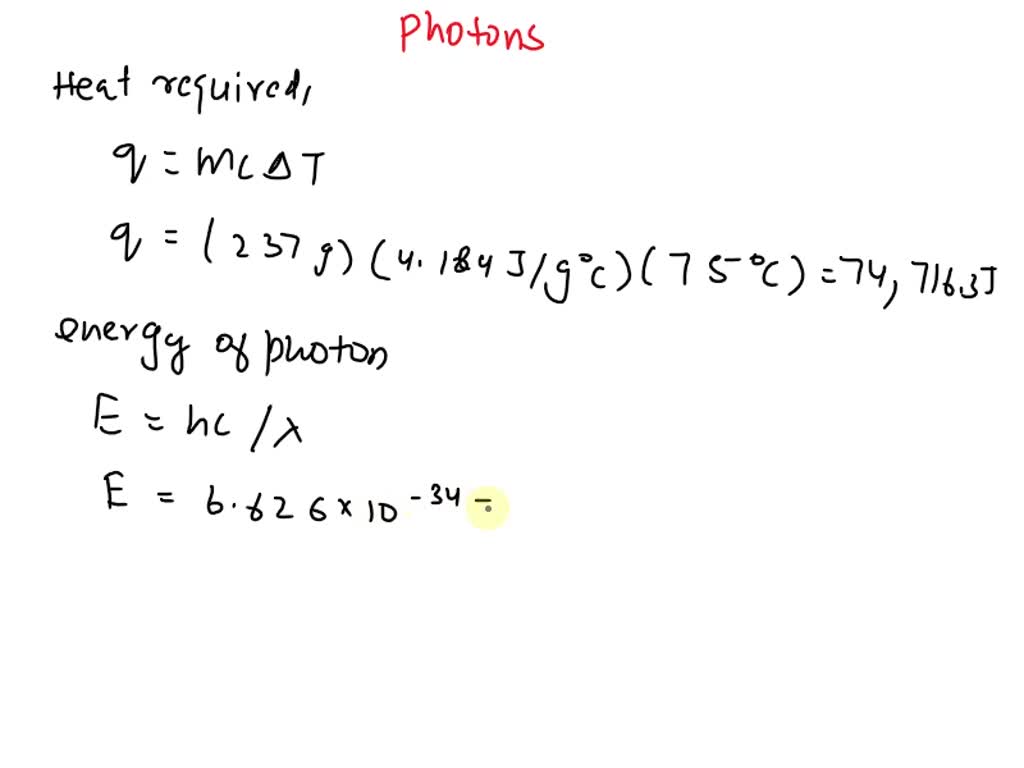 Photons
Heat required,
q = mcΔT
q = (237 g) (4.184 J/g°C) (75°C) = 74,716.3J
energy of photon
E = hc/λ
E = 6.626 × 10⁻³⁴